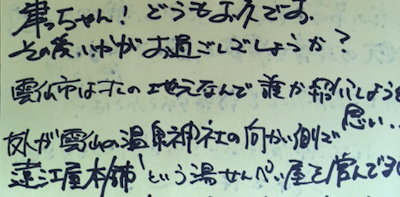 車っちゃん！どうもお久です。
その後いかがお過ごしでしょうか？
雲仙市はオレの地元なんで誰か紹介しようと
思い‥
友人が雲仙の温泉神社の向かい側で
"遠江屋本舗"という湯せんぺい屋を営んでる